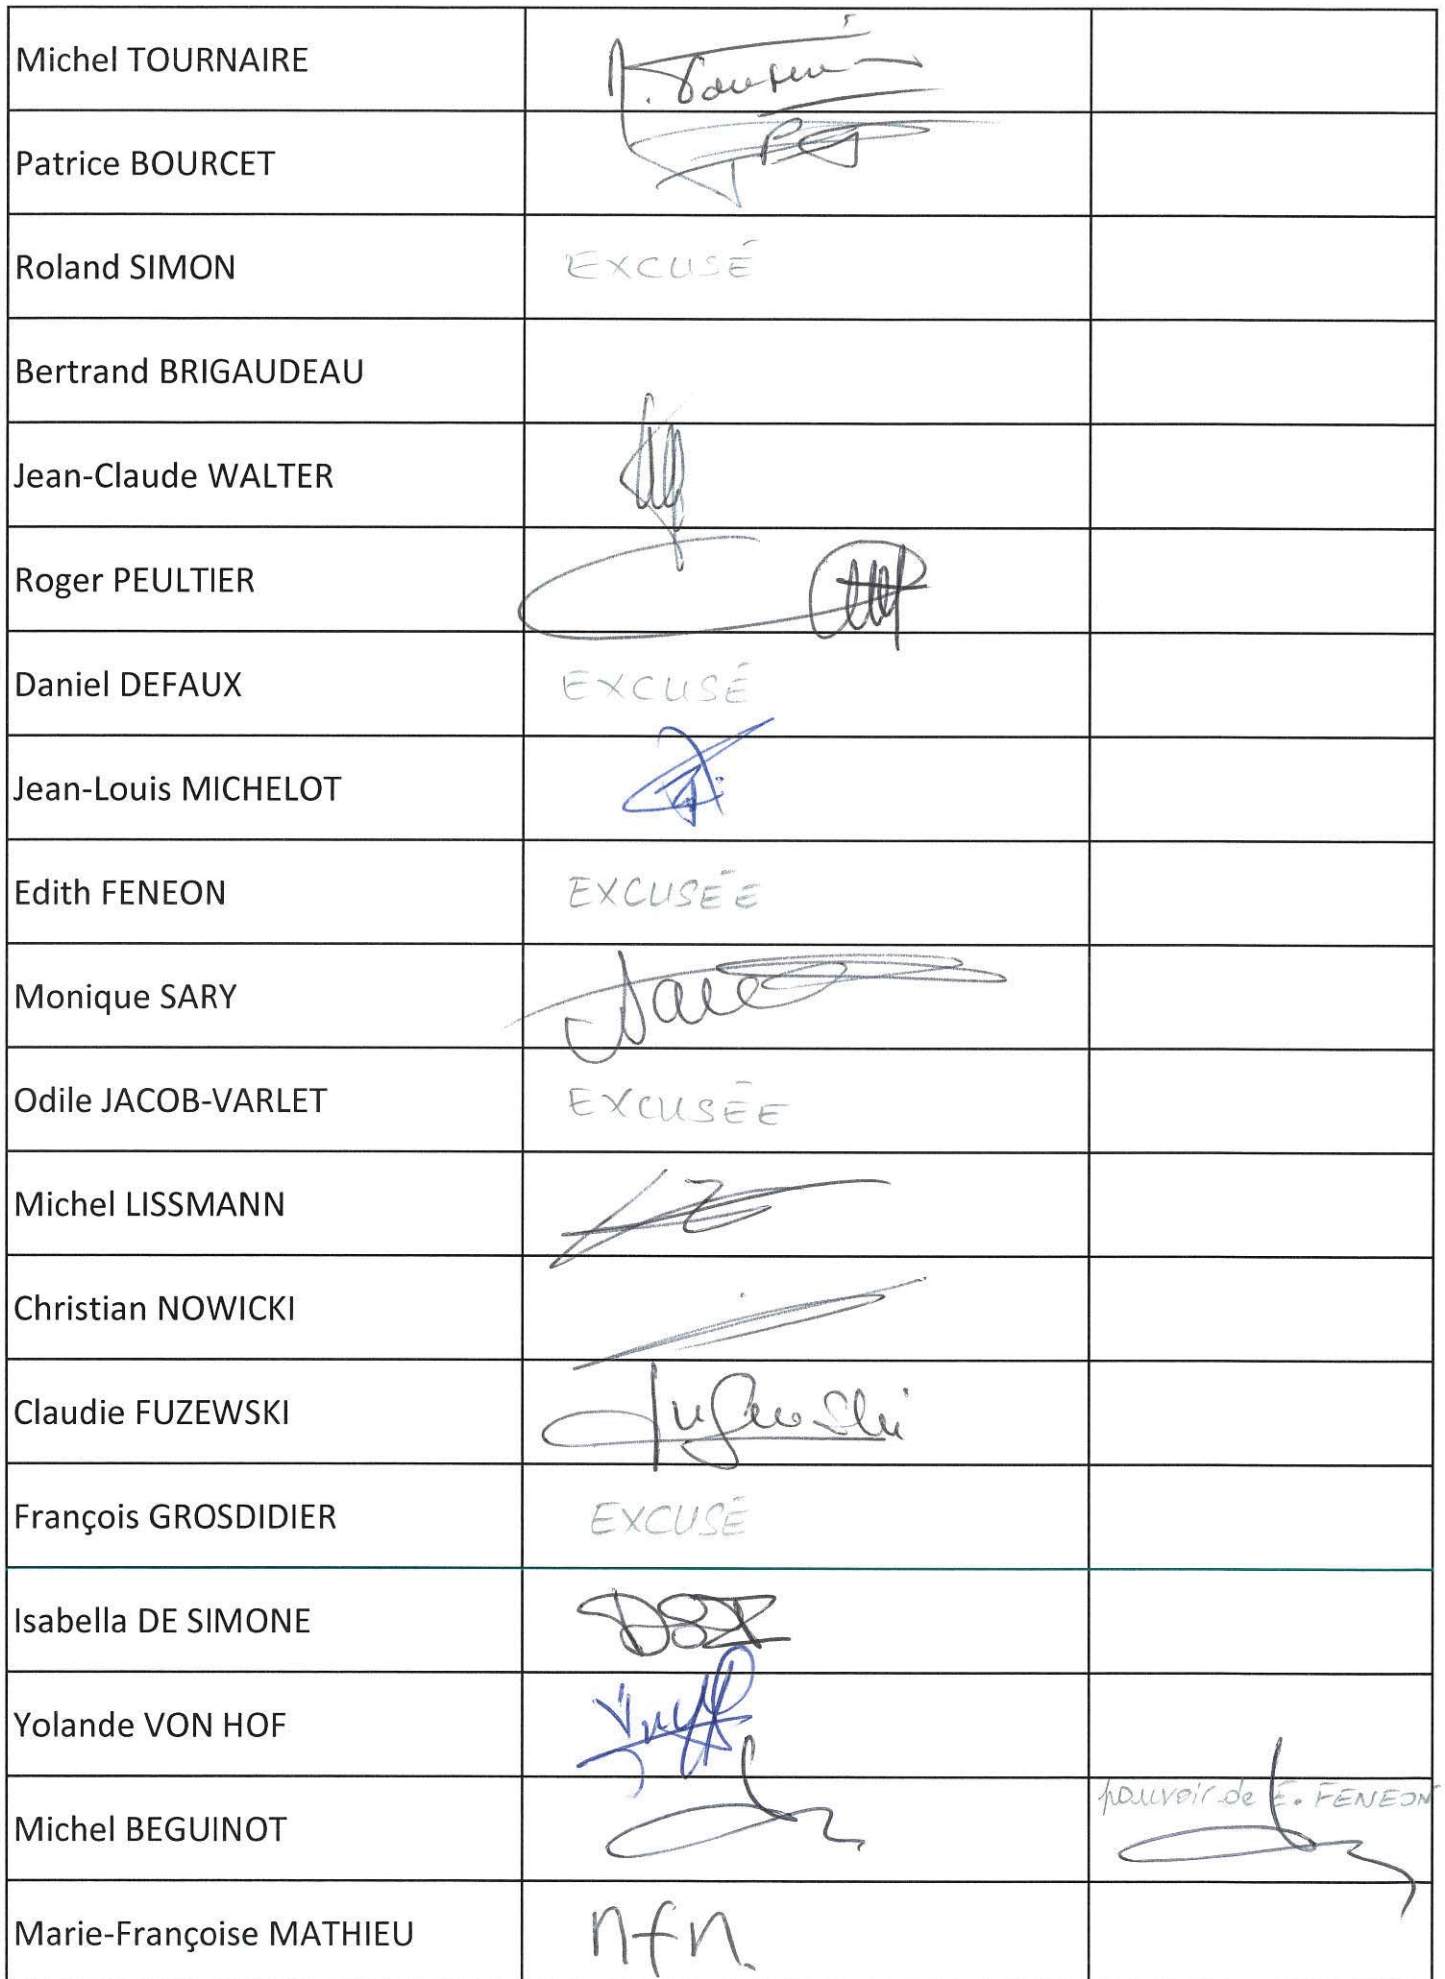 Michel TOURNAIRE
Patrice BOURCET
Roland SIMON EXCUSÉ
Bertrand BRIGAUDEAU
Jean-Claude WALTER
Roger PEULTIER
Daniel DEFAUX EXCUSÉ
Jean-Louis MICHELOT
Edith FENEON EXCUSÉE
Monique SARY
Odile JACOB-VARLET EXCUSÉE
Michel LISSMANN
Christian NOWICKI
Claudie FUZEWSKI
François GROSDIDIER EXCUSÉ
Isabella DE SIMONE
Yolande VON HOF
Michel BEGUINOT pouvoir de E. FENEON
Marie-Françoise MATHIEU